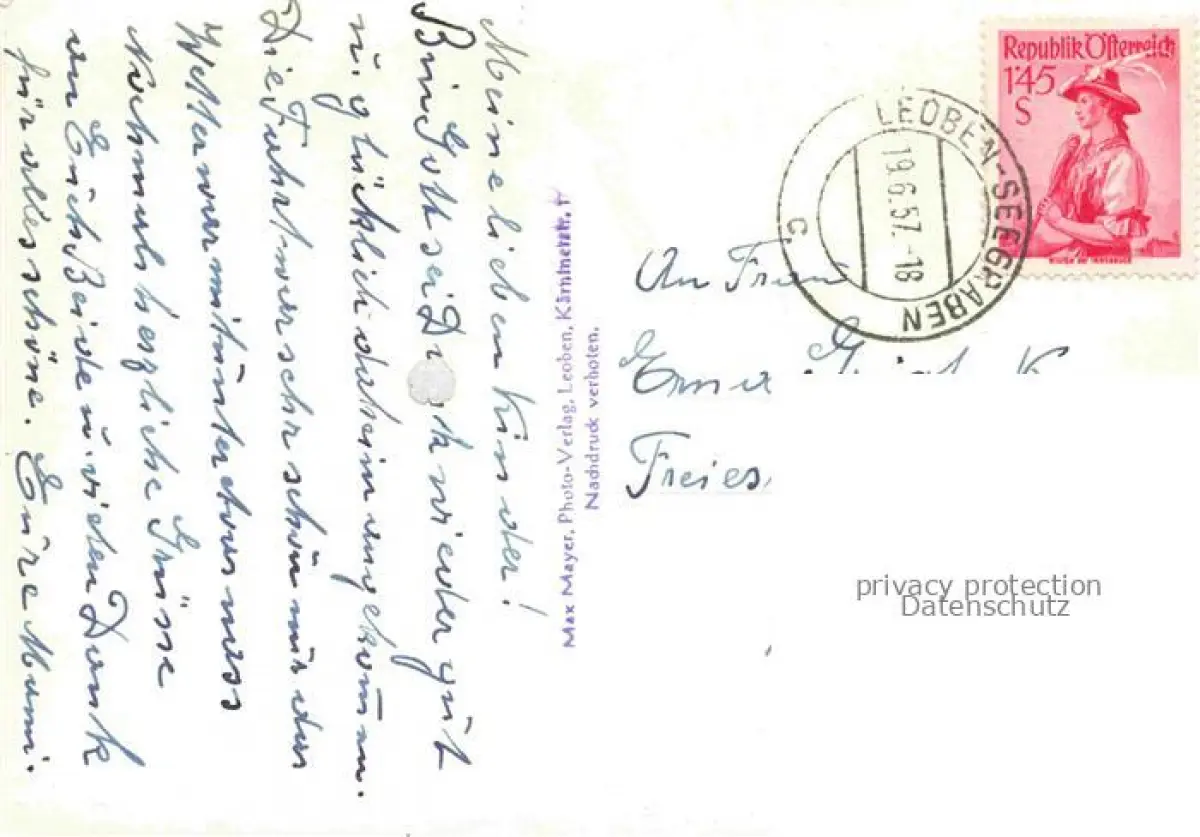 Meine lieben Kinder!
Bin Gott sei Dank wieder gut
u. glücklich daheim angekomm.
Die Fahrt war sehr schön nur das
Wetter war mitunter etwas nass
Nochmals herzliche Grüsse
an Euch Beide u. vielen Dank
für alles schöne. Eure Mami.
Max Mayer, Photo-Verlag, Leoben, Kärntnerstr.
Nachdruck verboten.
Republik Österreich
1'45
S
LEOBEN-SEEGRABEN
19.6.57.-18
C.
An Frau
Erna
Freies
privacy protection
Datenschutz